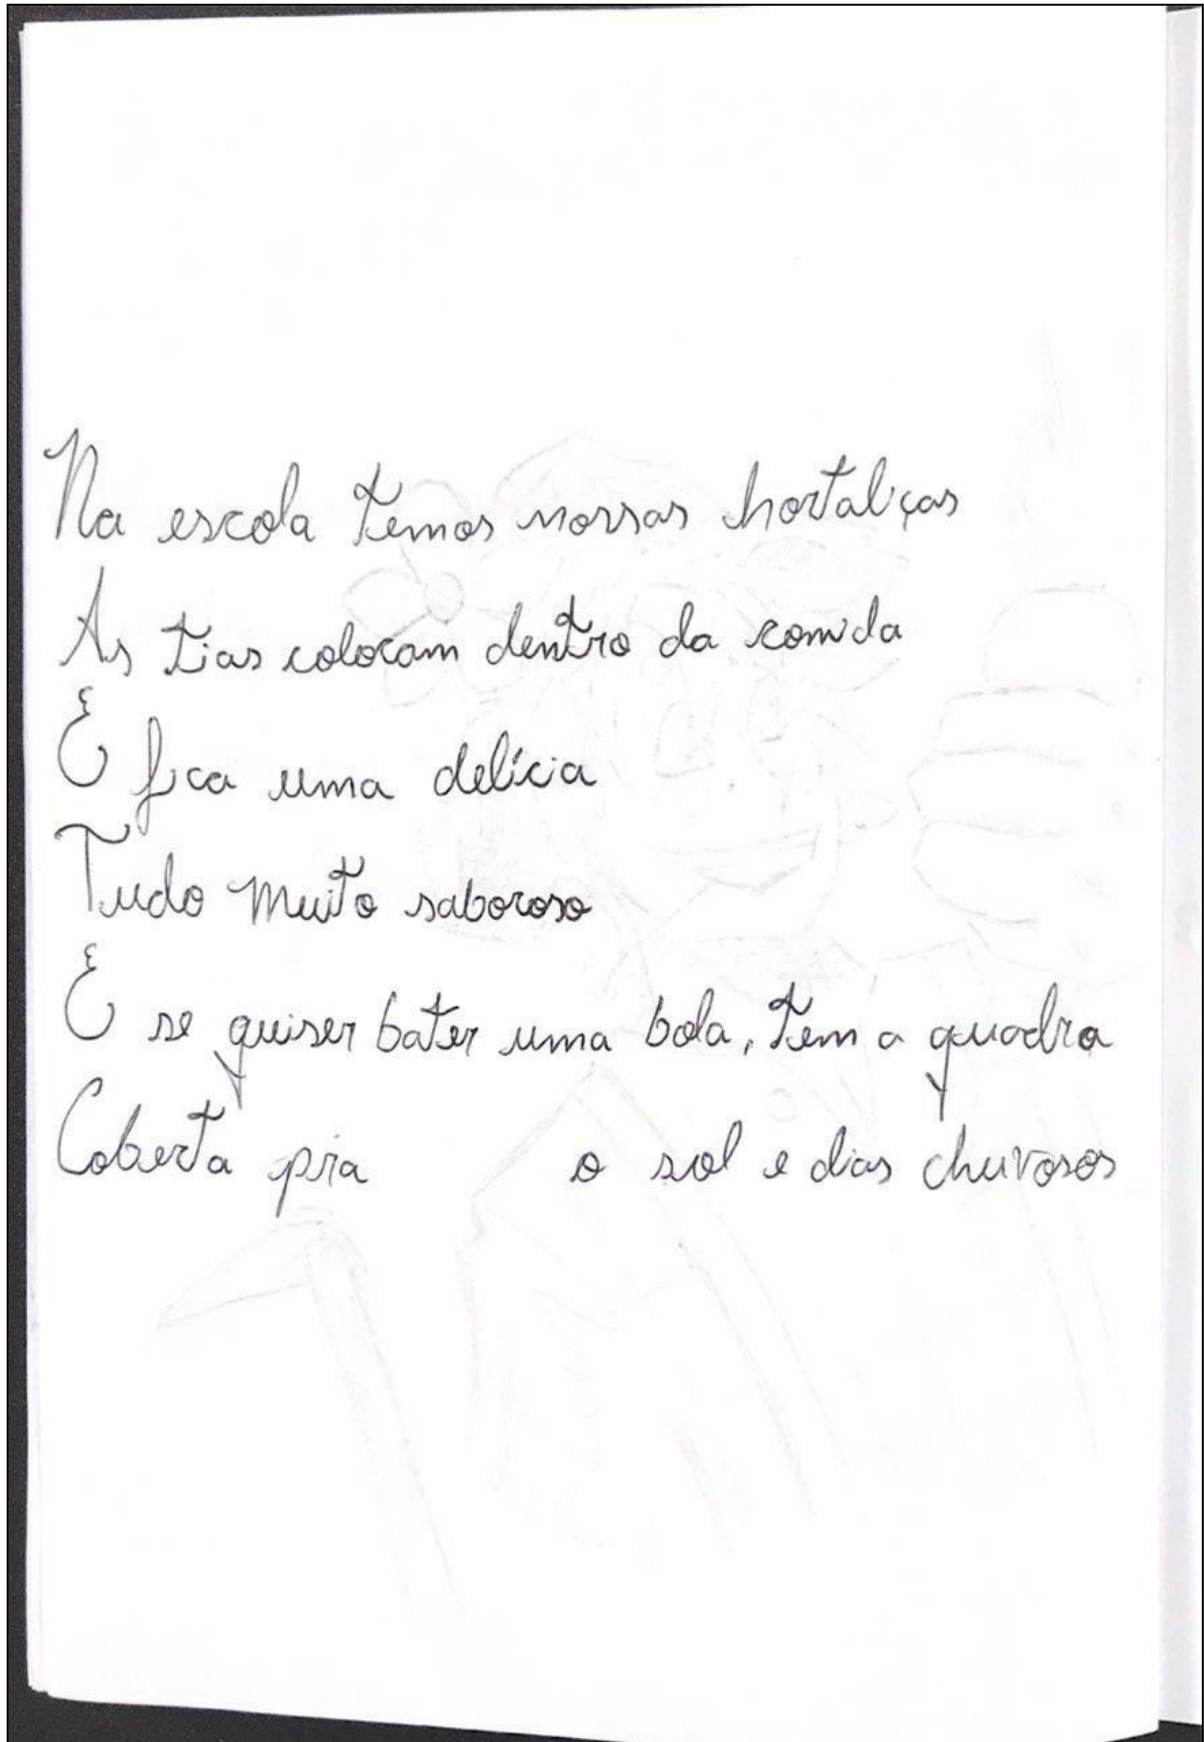 Na escola temos nossas hortaliças
As tias colocam dentro da comida
E fica uma delícia
Tudo muito saboroso
E se quiser bater uma bola, tem a quadra
Coberta pra o sol e dias chuvosos